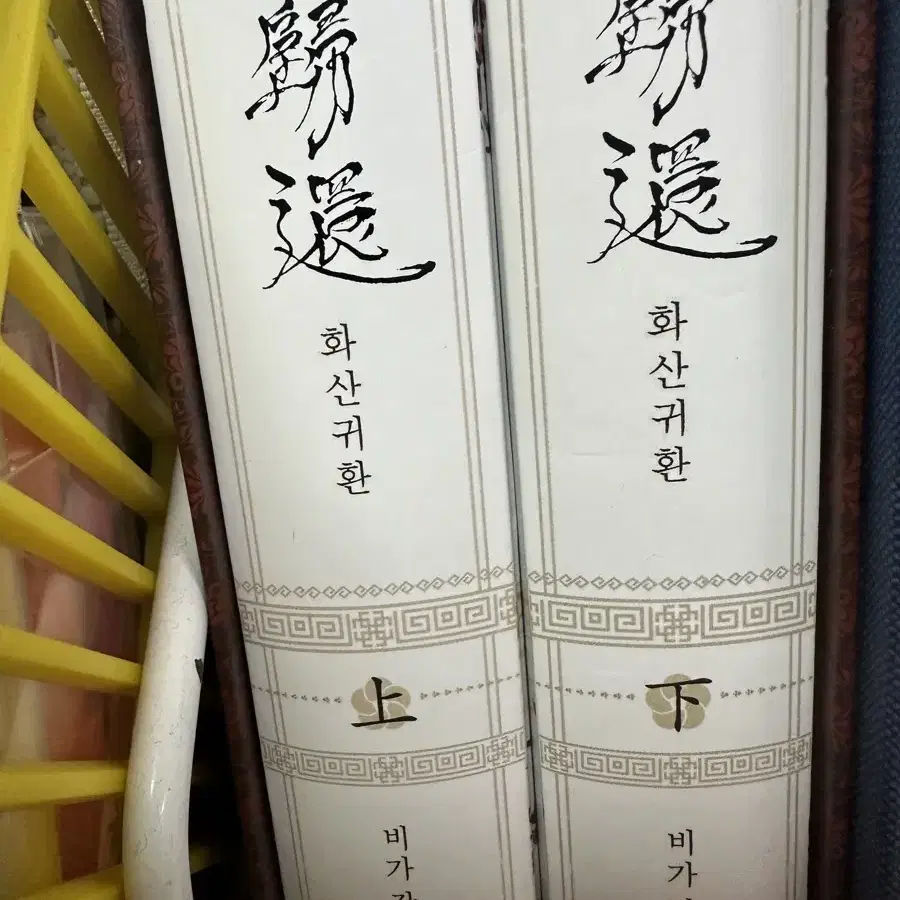 歸還
화산귀환
上
비가
歸還
화산귀환
下
비가